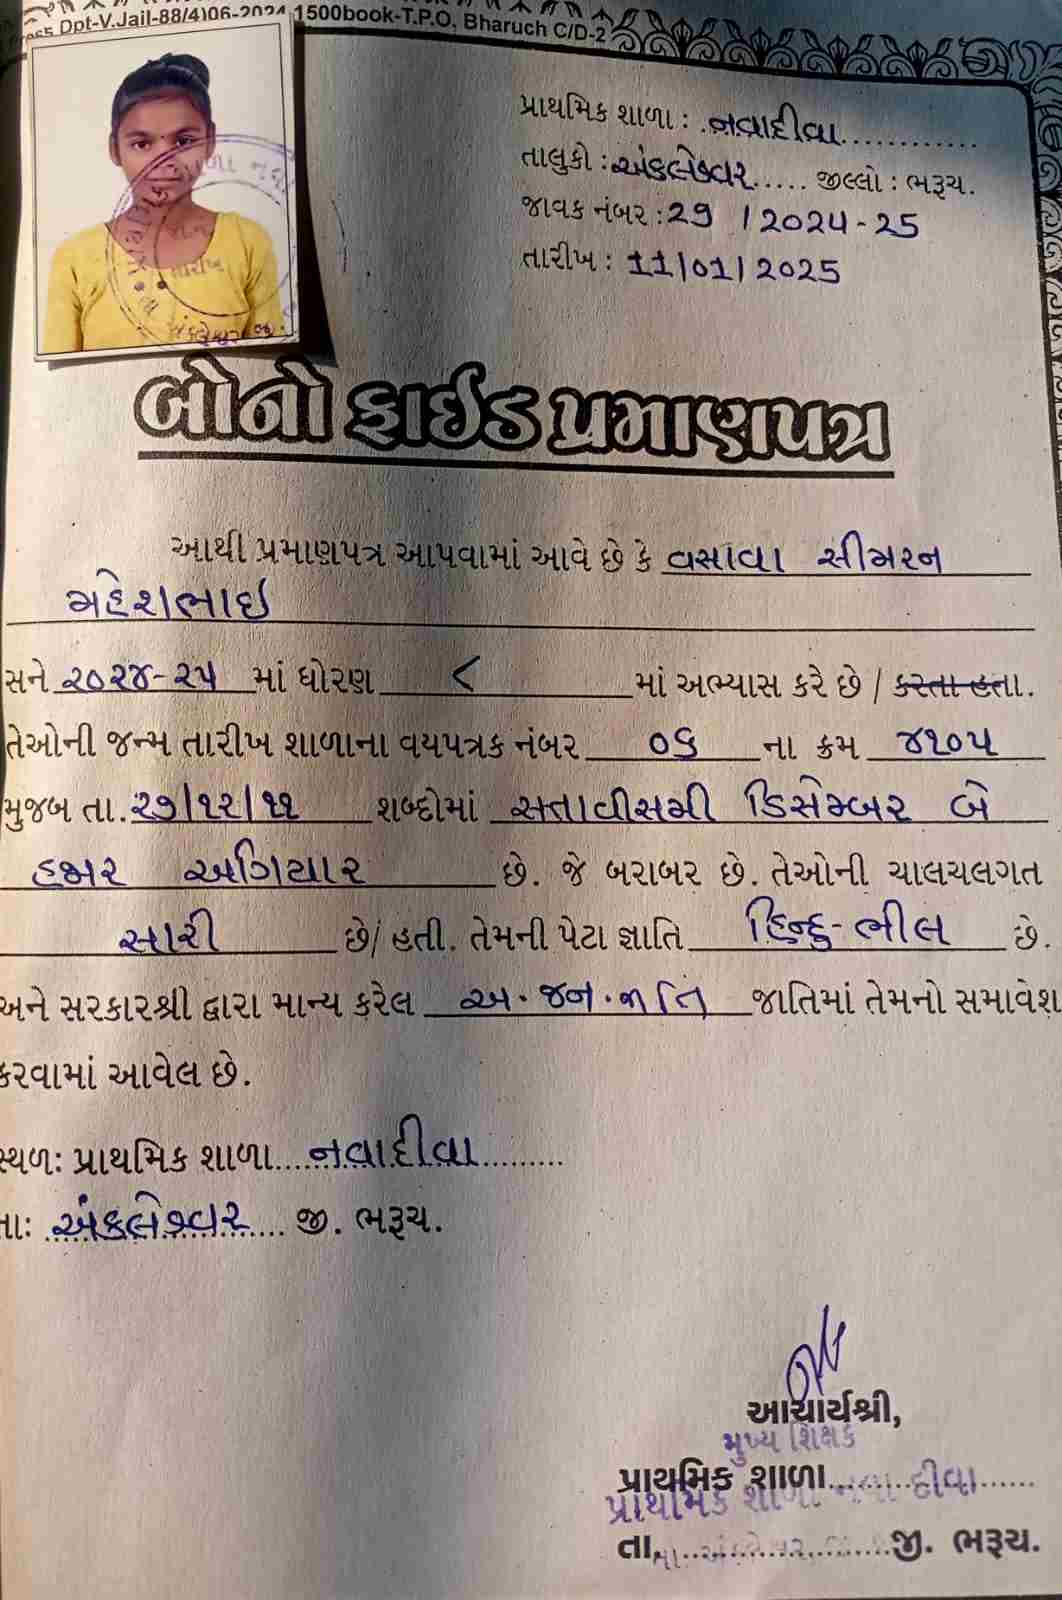 Dpt-V.Jail-88/4)06-2024 1500book-T.P.O. Bharuch C/D-2
પ્રાથમિક શાળા : .નવાદીવા............
તાલુકો : અંકલેશ્વર..... જીલ્લો : ભરૂચ.
જાવક નંબર : 29 / 2024-25
તારીખ : 11/01/2025
બોનોફાઈડ પ્રમાણપત્ર
આથી પ્રમાણપત્ર આપવામાં આવે છે કે વસાવા સીમરન
મહેશભાઇ
સને ૨૦૨૪-૨૫ માં ધોરણ ૮ માં અભ્યાસ કરે છે / કરતા હતા.
તેઓની જન્મ તારીખ શાળાના વયપત્રક નંબર ૦૬ ના ક્રમ ૪૧૦૫
મુજબ તા. ૨૭/૧૨/૧૧ શબ્દોમાં સતાવીસમી ડિસેમ્બર બે
હજાર અગિયાર છે. જે બરાબર છે. તેઓની ચાલચલગત
સારી છે/ હતી. તેમની પેટા જ્ઞાતિ હિન્દુ-ભીલ છે.
અને સરકારશ્રી દ્વારા માન્ય કરેલ અ.જન.જાતિ જાતિમાં તેમનો સમાવેશ
કરવામાં આવેલ છે.
સ્થળ: પ્રાથમિક શાળા....નવાદીવા.........
તા: અંકલેશ્વર.... જી. ભરૂચ.
આચાર્યશ્રી,
મુખ્ય શિક્ષક
પ્રાથમિક શાળા....................
પ્રાથમિક શાળા નવા દીવા
તા......................જી. ભરૂચ.